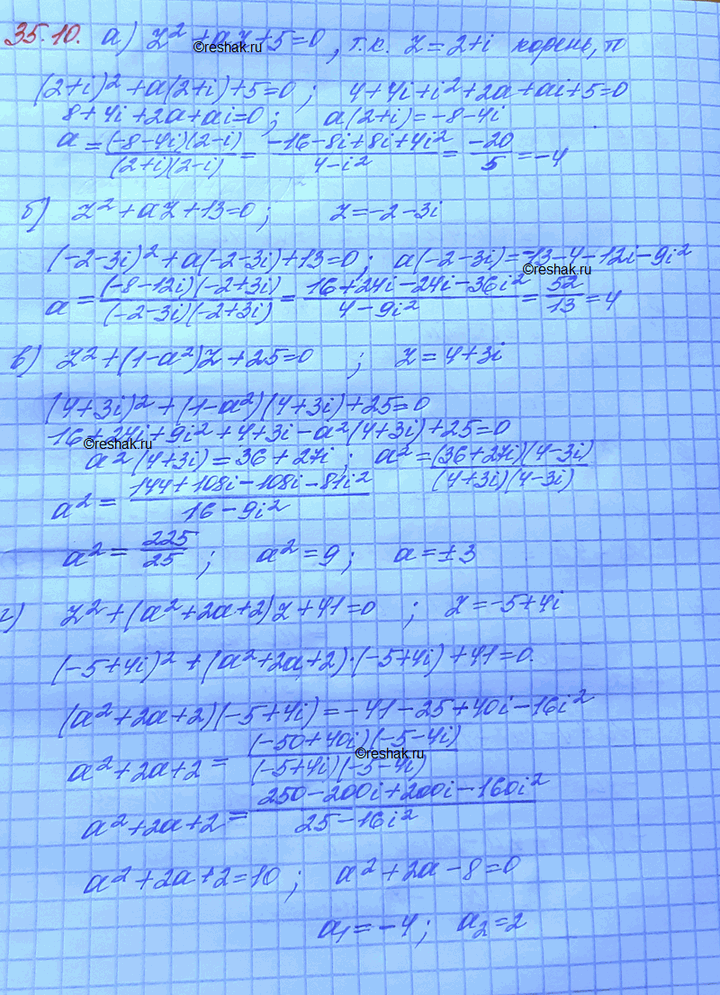 35.10. а) z² + az + 5 = 0, т.к. z = 2+i корень, то
(2+i)² + a(2+i) + 5 = 0; 4 + 4i + i² + 2a + ai + 5 = 0
8 + 4i + 2a + ai = 0; a(2+i) = -8 - 4i
a = (-8-4i)(2-i) / (2+i)(2-i) = -16-8i+8i+4i² / 4-i² = -20/5 = -4
б) z² + az + 13 = 0; z = -2-3i
(-2-3i)² + a(-2-3i) + 13 = 0; a(-2-3i) = -13-4-12i-9i²
a = (-8-12i)(-2+3i) / (-2-3i)(-2+3i) = 16+24i-24i-36i² / 4-9i² = 52/13 = 4
в) z² + (1-a²)z + 25 = 0; z = 4+3i
(4+3i)² + (1-a²)(4+3i) + 25 = 0
16 + 24i + 9i² + 4 + 3i - a²(4+3i) + 25 = 0
a²(4+3i) = 36 + 27i; a² = (36+27i)(4-3i) / (4+3i)(4-3i)
a² = 144+108i-108i-81i² / 16-9i²
a² = 225/25; a² = 9; a = ±3
г) z² + (a²+2a+2)z + 41 = 0; z = -5+4i
(-5+4i)² + (a²+2a+2)·(-5+4i) + 41 = 0.
(a²+2a+2)(-5+4i) = -41-25+40i-16i²
a²+2a+2 = (-50+40i)(-5-4i) / (-5+4i)(-5-4i)
a²+2a+2 = 250-200i+200i-160i² / 25-16i²
a²+2a+2 = 10; a²+2a-8 = 0
a₁ = -4; a₂ = 2
©reshak.ru
©reshak.ru
©reshak.ru
©reshak.ru